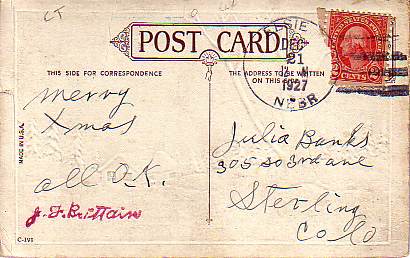 CT
POST CARD
DEC
21
1927
NEBR
CENTS
THIS SIDE FOR CORRESPONDENCE
THE ADDRESS TO BE WRITTEN
ON THIS SIDE
MADE IN U.S.A.
merry
Xmas
all O.K.
J. F. Brittain
Julia Banks
305 So 3rd ave
Sterling
Colo